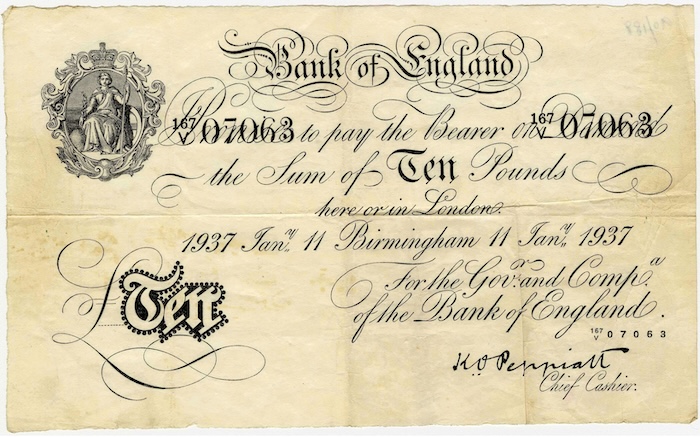 Bank of England
167/V 07063 167/V 07063
Promise to pay the Bearer on Demand
the Sum of Ten Pounds
here or in London.
1937 Jan.y 11 Birmingham 11 Jan.y 1937
For the Gov.r and Comp.a
of the Bank of England.
£Ten
167/V 07063
K O Peppiatt
Chief Cashier.